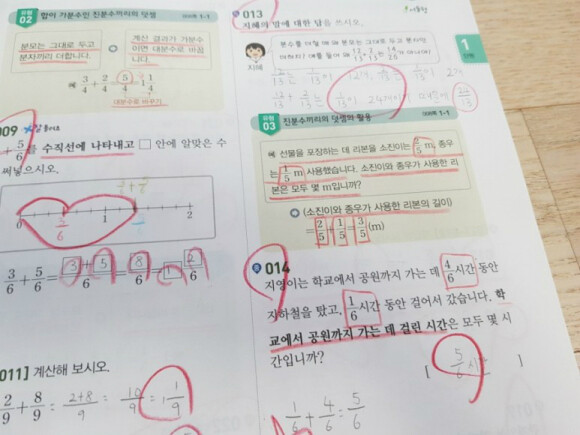 유형 02 합이 가분수인 진분수끼리의 덧셈 개념책 1-1
분모는 그대로 두고
분자끼리 더합니다.
계산 결과가 가분수
이면 대분수로 바꿉
니다.
예 3/4 + 2/4 = 5/4 = 1 1/4
대분수로 바꾸기
009
+ 5/6 를 수직선에 나타내고 □ 안에 알맞은 수
써넣으시오.
0 1 2
5/6
3/6 + 5/6 = 3+5/6 = 8/6 = 1 2/6
011] 계산해 보시오.
2/9 + 8/9 = 2+8/9 = 10/9 = 1 1/9
013
지혜의 말에 대한 답을 쓰시오.
분수를 더할 때 왜 분모는 그대로 두고 분자만
지혜
1
단원
유형 03 진분수끼리의 덧셈의 활용 개념책 1-1
예 선물을 포장하는 데 리본을 소진이는 2/5 m, 종우
는 1/5 m 사용했습니다. 소진이와 종우가 사용한 리
본은 모두 몇 m입니까?
(소진이와 종우가 사용한 리본의 길이)
= 2/5 + 1/5 = 3/5 (m)
014
지영이는 학교에서 공원까지 가는 데 4/6 시간 동안
지하철을 탔고, 1/6 시간 동안 걸어서 갔습니다. 학
교에서 공원까지 가는 데 걸린 시간은 모두 몇 시
간입니까?
[ 5/6 시간 ]
1/6 + 4/6 = 5/6